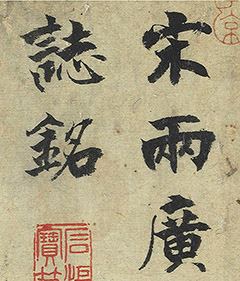 宋兩廣
誌銘